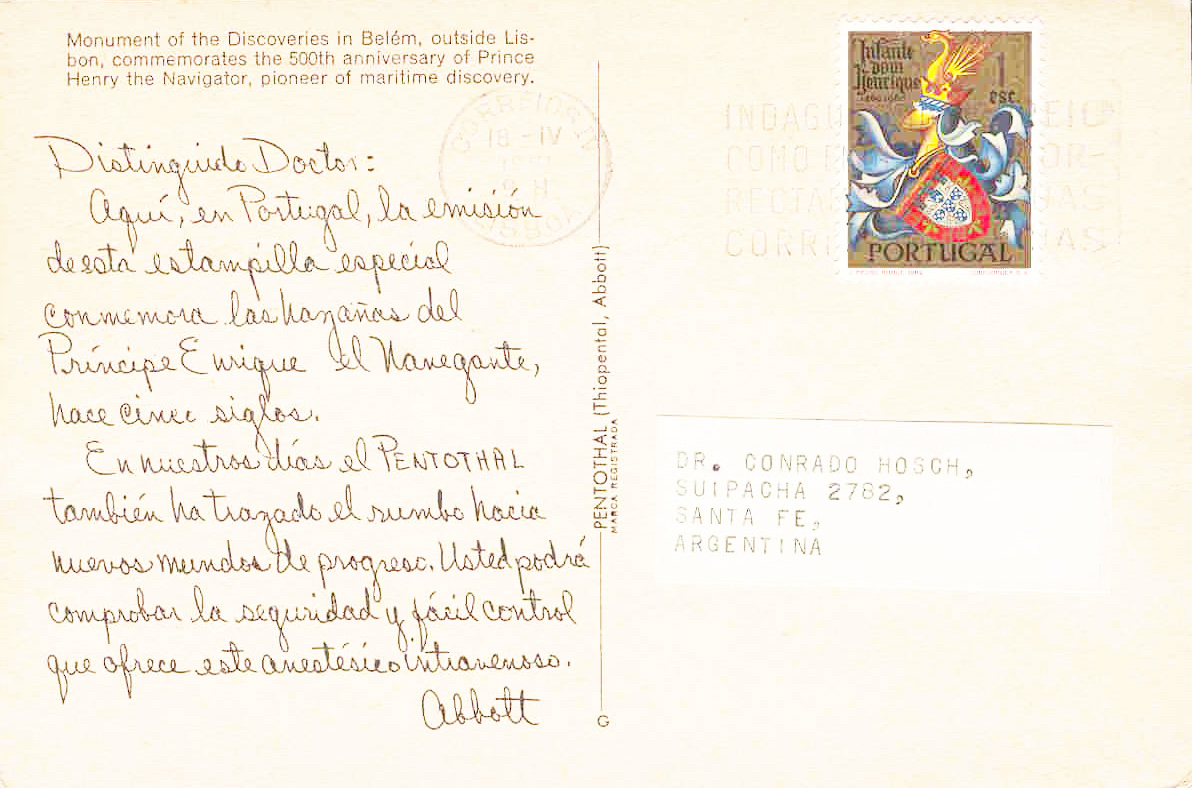 Monument of the Discoveries in Belém, outside Lis-
bon, commemorates the 500th anniversary of Prince
Henry the Navigator, pioneer of maritime discovery.
Distinguido Doctor:
Aquí, en Portugal, la emisión
de esta estampilla especial
conmemora las hazañas del
Príncipe Enrique el Navegante,
hace cinco siglos.
En nuestros días el PENTOTHAL
también ha trazado el rumbo hacia
nuevos mundos de progreso. Usted podrá
comprobar la seguridad y fácil control
que ofrece este anestésico intravenoso.
Abbott
PENTOTHAL (Thiopental, Abbott)
MARCA REGISTRADA
G
18 - IV
LISBOA
Infante
dom
Henrique
1460 1960
1
esc.
PORTUGAL
INDAGU
COMO
OR-
RECTA
AS
CORR
AS
DR. CONRADO HOSCH,
SUIPACHA 2782,
SANTA FE,
ARGENTINA